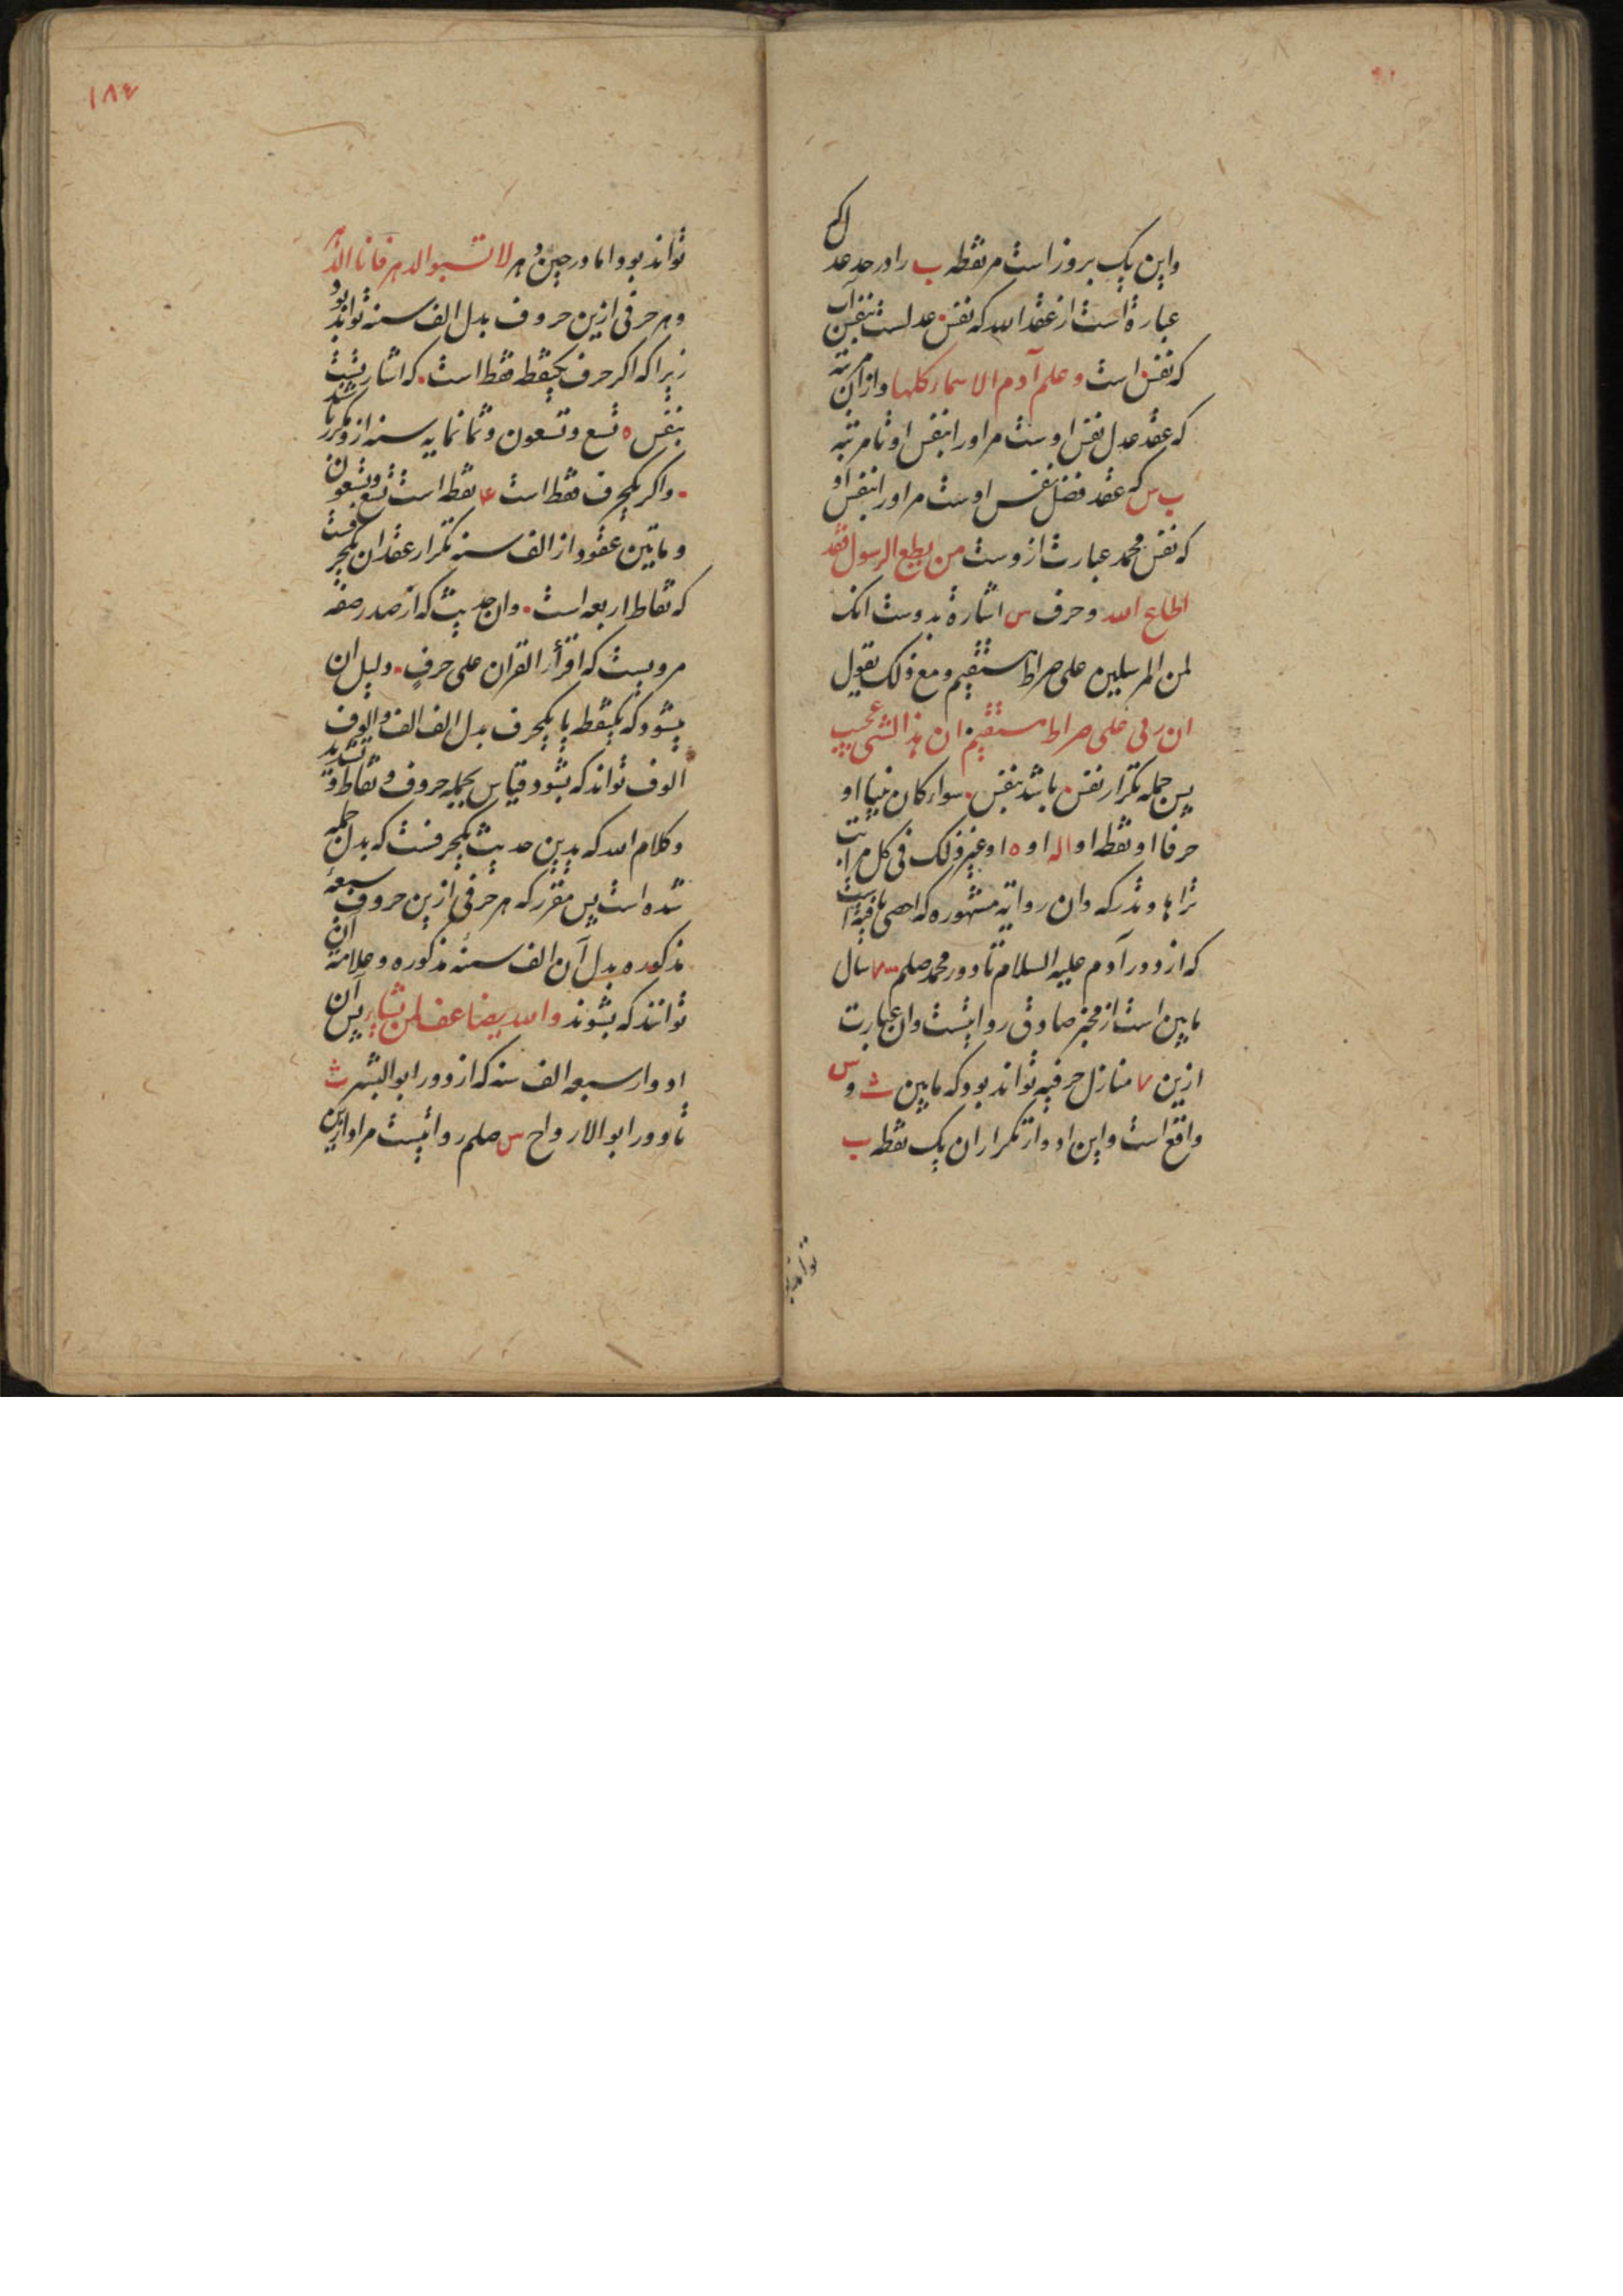 واین یک بروز است مر نقطه ب را در حد عد
عبارة است از عقد الله که نفس۰ عدلست بنفس آب
که نفس۰ است وعلم آدم الاسماء کلها واز آن مرتبه
که عقد عدل نفس اوست مر اورا بنفس او تا مرتبه
ب س که عقد فضل نفس اوست مر اورا بنفس او
که نفس محمد عبارت ازوست من یطع الرسول فقد
اطاع الله وحرف س اشارة بدوست انک
لمن المرسلین علی صراط مستقیم ومع ذلک یقول
ان ربی علی صراط مستقیم ان هذا لشی عجیب
پس جمله تکرار نفس۰ باشد بنفس۰ سواء کان نبیا او
حرفا او نقطه او اله او ه او غیر ذلک فی کل مراتب
تراها وتدرکه وان روایة مشهوره که احصی ما فیه است
که از دور آدم علیه السلام تا دور محمد صلم ۷۰۰۰ سال
مابین است از مخبر صادق روایتست وان عبارت
ازین ۷ منازل حرفیه تواند بود که مابین ث و س
واقع است واین ادوار تکرار ان یک نقطه ب
تواند بود
۱۸۴
تواند بود واما در حین دهر لا تسبوا الدهر فانا الدهر
وهر حرفی ازین حروف بدل الف سنه تواند بود
زیرا که اکر حرف یکنقط فقط است۰ که اشارتست
بنفس ه تسع وتسعون وثمانمایه سنه ازو مکرر باشد
۰ واکر یکحرف فقط است ۴ نقطه است تسع وتسعون
وماتین عقود از الف سنه تکرار عقد ان یکحرفست
که نقاط اربعه است۰ وان حدیث که از صدر صفه
مرویست که اقرأ القران علی حرفٍ۰ دلیل ان
میشود که یکنقطه یا یکحرف بدل الف الف والوف
الوف تواند که بشود وقیاس بجمله حروف ونقاط وتشدید
وکلام الله که بدین حدیث یکحرفست که بدل جمله
شده است پس مقرر که هر حرفی ازین حروف سبعهٔ
مذکوره بدل آن الف سنهٔ مذکوره وعلامة آن
توانند که بشوند والله یضاعف لمن یشاء پس آن
ادوار سبعه الف سنه که از دور ابو البشر ث
تا دور ابو الارواح س صلم روایتست مراد ازین